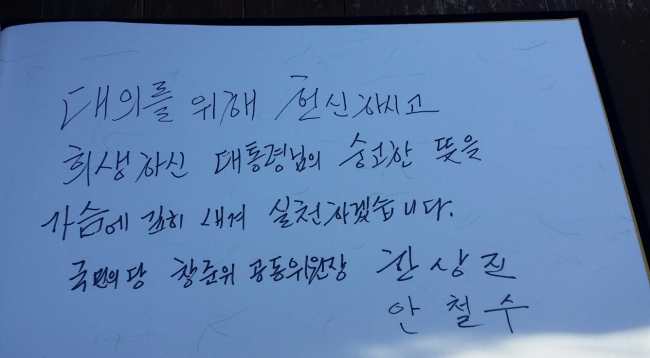 대의를 위해 헌신하시고
희생하신 대통령님의 숭고한 뜻을
가슴에 깊히 새겨 실천하겠습니다.
국민의당 창준위 공동위원장 한상진
안철수